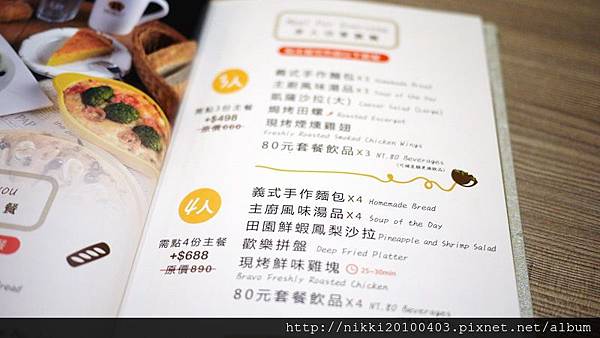 3人
需點3份主餐
+$498
原價660
義式手作麵包X3 Homemade Bread
主廚風味湯品X3 Soup of the Day
凱薩沙拉(大) Caesar Salad (Large)
焗烤田螺 Roasted Escargot
現烤煙燻雞翅
Freshly Roasted Smoked Chicken Wings
80元套餐飲品X3 NT.80 Beverages
4人
需點4份主餐
+$688
原價890
義式手作麵包X4 Homemade Bread
主廚風味湯品X4 Soup of the Day
田園鮮蝦鳳梨沙拉 Pineapple and Shrimp Salad
歡樂拼盤 Deep Fried Platter
現烤鮮味雞塊 25-30min
Bravo Freshly Roasted Chicken
80元套餐飲品X4 NT.80 Beverages
you
餐
http://nikki20100403.pixnet.net/album